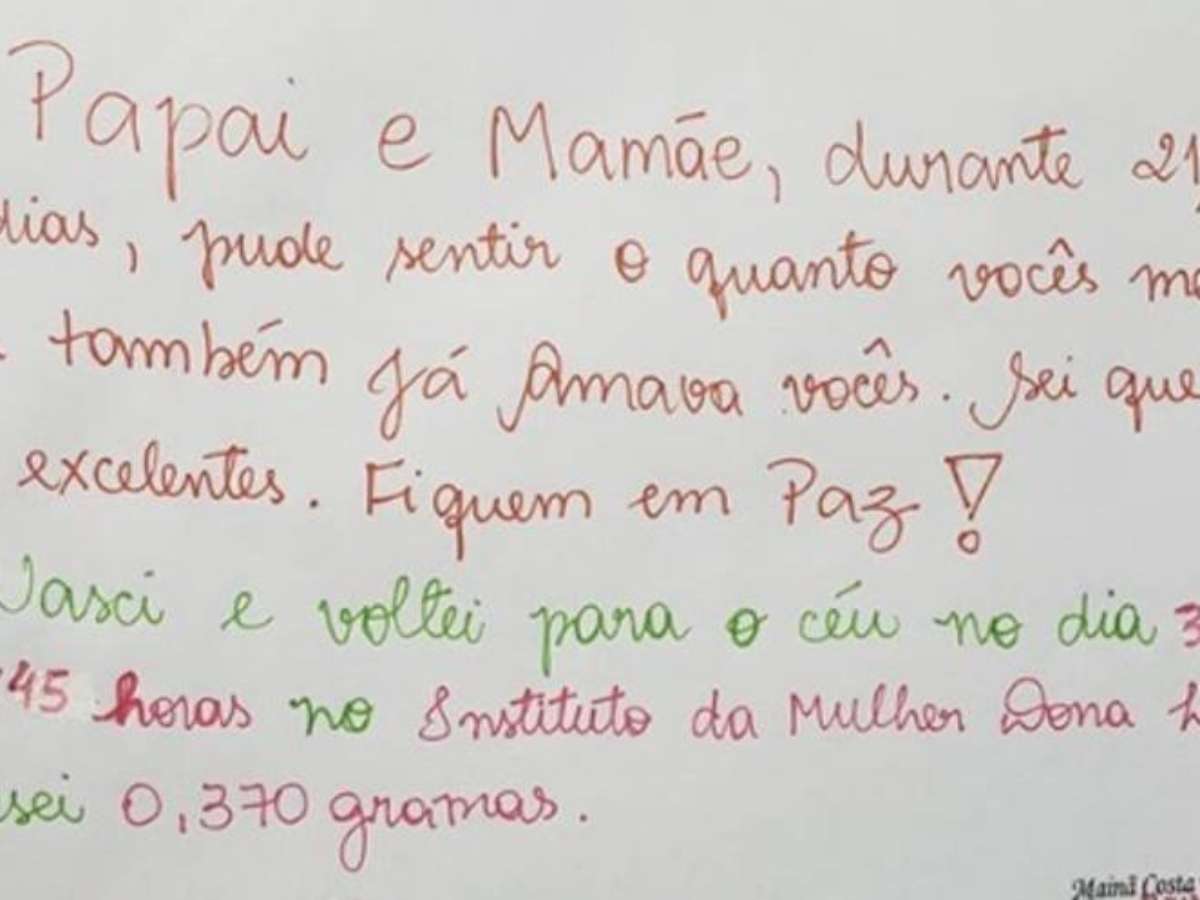 Papai e Mamãe, durante 21
dias, pude sentir o quanto vocês
também já Amava vocês. Sei que
excelentes. Fiquem em Paz!
Nasci e voltei para o céu no dia 3
45 horas no Instituto da Mulher Dona
sei 0,370 gramas.
Mainã Costa